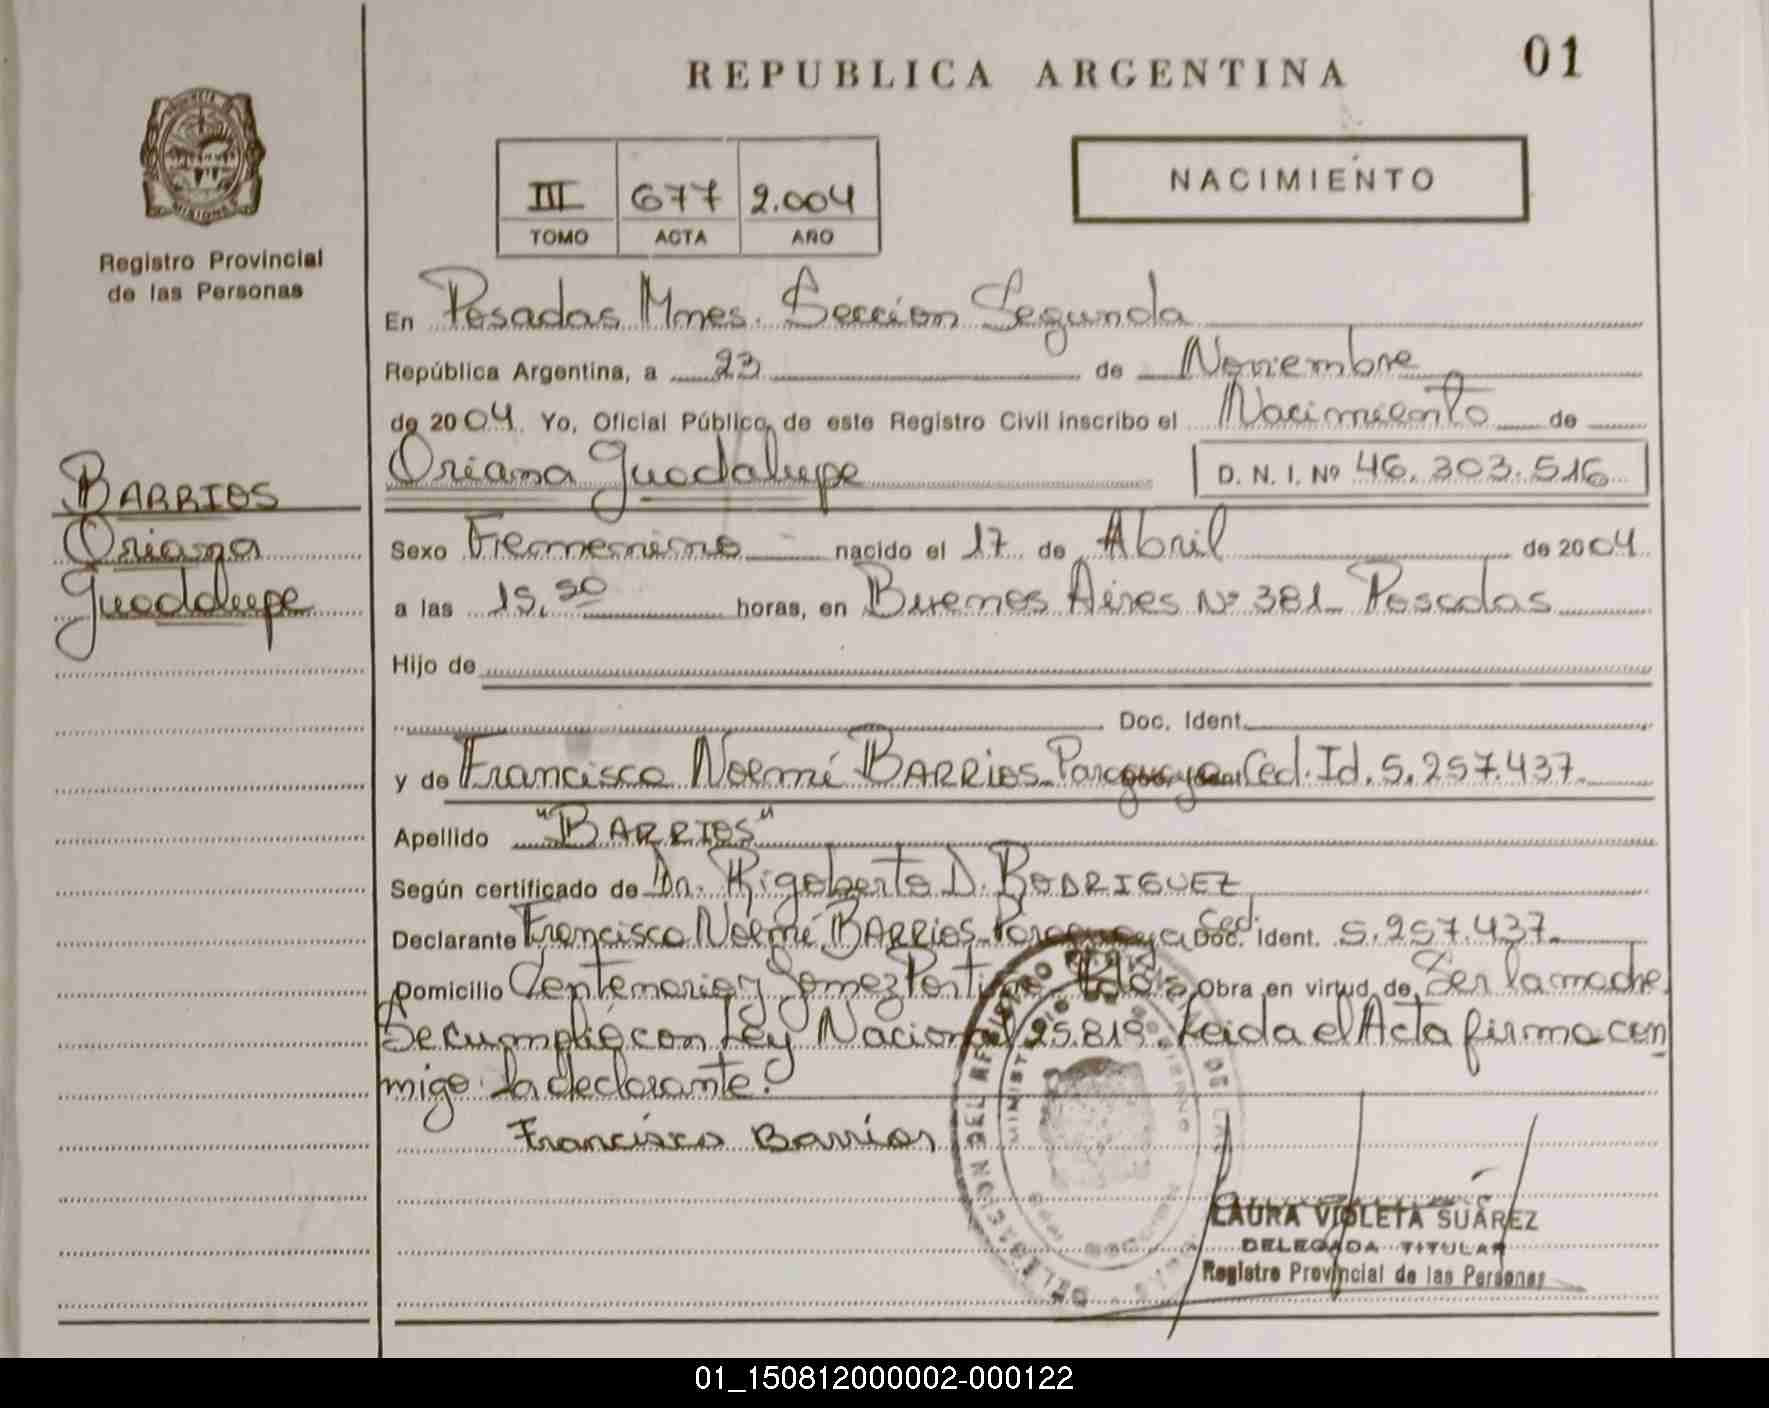 REPUBLICA ARGENTINA
01
Registro Provincial
de las Personas
III 677 2.004
TOMO ACTA AÑO
NACIMIENTO
En Posadas Mnes. Seccion Segunda
República Argentina, a 23 de Noviembre
de 2004. Yo, Oficial Público, de este Registro Civil inscribo el Nacimiento de
Oriana Guadalupe D. N. I. Nº 46.303.516
BARRIOS
Oriana
Guadalupe
Sexo Femenino nacido el 17 de Abril de 2004
a las 15, horas, en Buenos Aires Nº 381 Posadas
Hijo de
Doc. Ident.
y de Francisca Noemí BARRIOS Paraguaya Ced. Id. 5.257.437
Apellido "BARRIOS"
Según certificado de Dr. Rigoberto D. RODRIGUEZ
Declarante Francisca Noemí BARRIOS Paraguaya Ced. Doc. Ident. 5.257.437
Domicilio Centenario y Gomez Obra en virtud de Ser la madre
Se cumplió con Ley Nacional 25.819. Leida el Acta firma con
migo la declarante.
Francisca Barrios
LAURA VIOLETA SUÁREZ
DELEGADA TITULAR
Registro Provincial de las Personas
01_150812000002-000122